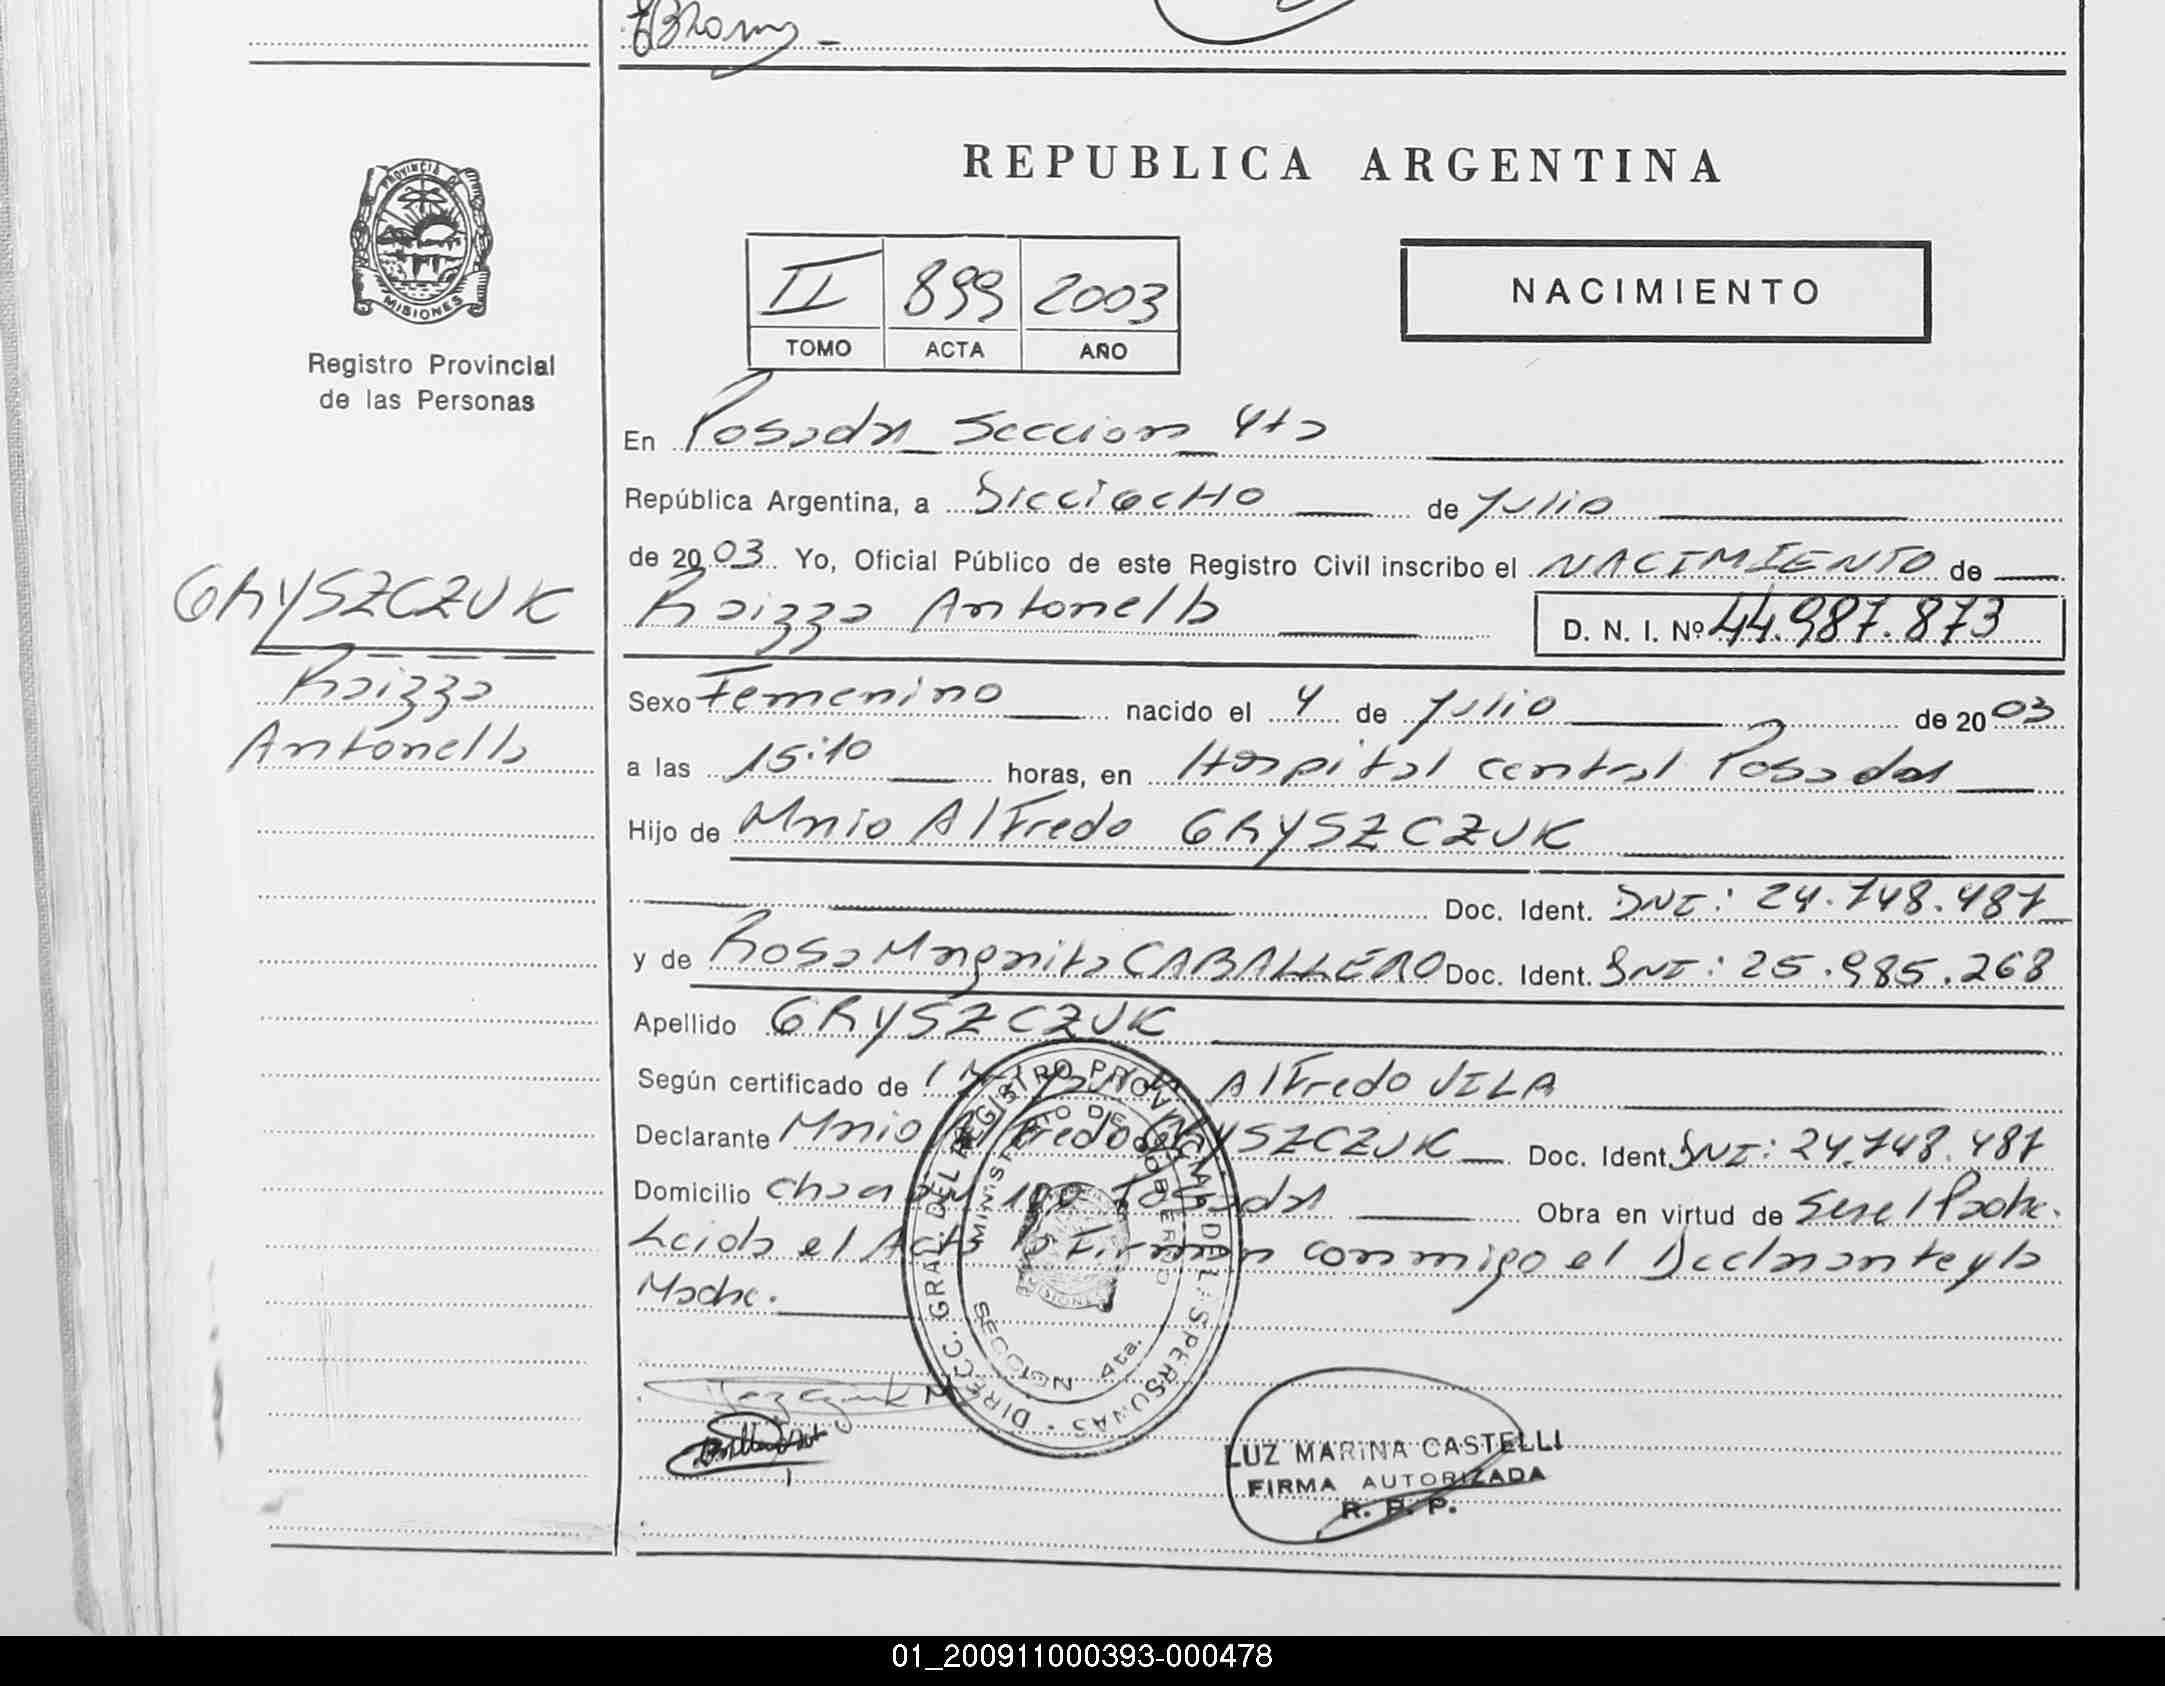 PROVINCIA DE
MISIONES
Registro Provincial
de las Personas
GRYSZCZUK
Raizza
Antonella
REPUBLICA ARGENTINA
II 899 2003
TOMO ACTA AÑO
NACIMIENTO
En Posadas Seccion 4ta
República Argentina, a Dieciocho de Julio
de 2003 Yo, Oficial Público de este Registro Civil inscribo el NACIMIENTO de
Raizza Antonella D. N. I. Nº 44.987.873
Sexo Femenino nacido el 4 de Julio de 2003
a las 15:10 horas, en Hospital central Posadas
Hijo de Mario Alfredo GRYSZCZUK
Doc. Ident. DNI: 24.748.487
y de Rosa Margarita CABALLERO Doc. Ident. DNI: 25.985.268
Apellido GRYSZCZUK
Según certificado de Alfredo VILA
Declarante Mario Alfredo GRYSZCZUK Doc. Ident. DNI: 24.748.487
Domicilio Posadas Obra en virtud de ser el Padre.
Leida el Acta la Firman conmigo el Declarante y la
Madre.
DIRECC. GRAL. DEL REGISTRO PROVINCIAL DE LAS PERSONAS
MINISTERIO DE GOBIERNO
SECCION 4ta.
LUZ MARINA CASTELLI
FIRMA AUTORIZADA
R. P. P.
01_200911000393-000478